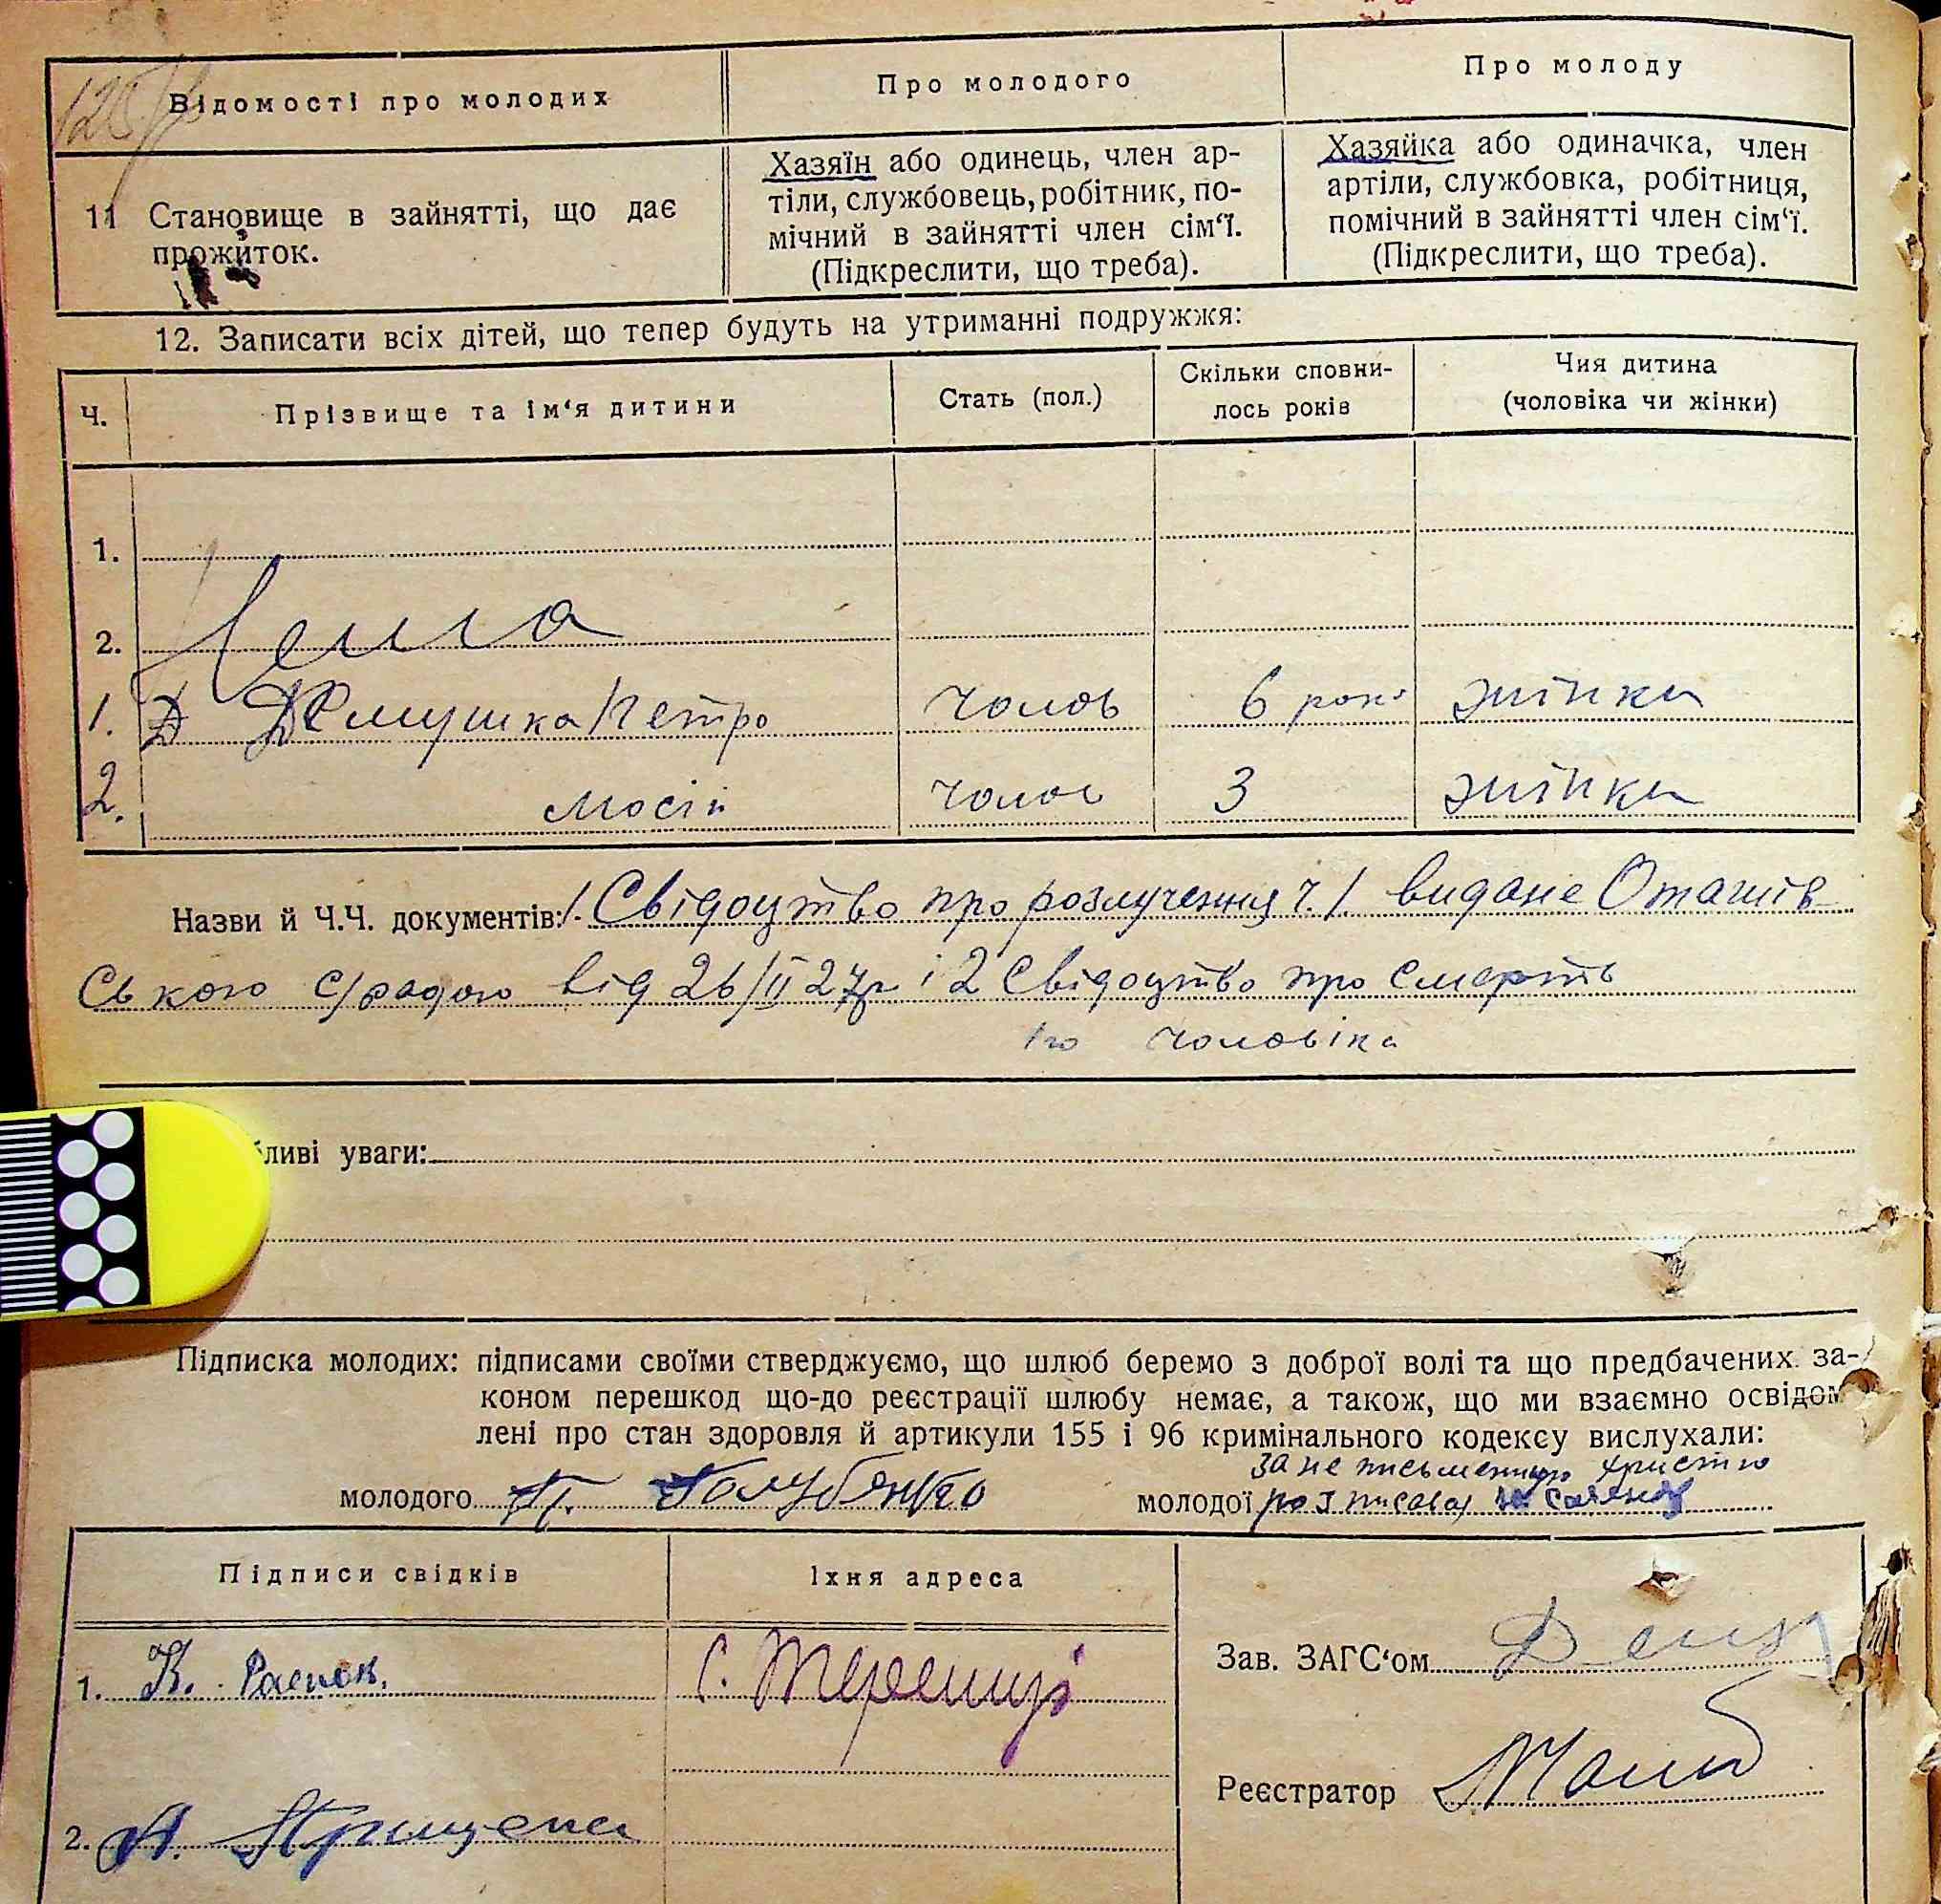 Відомості про молодих
Про молодого
Про молоду
11 Становище в зайнятті, що дає
прожиток.
Хазяїн або одинець, член ар-
тіли, службовець, робітник, по-
мічний в зайнятті член сім‘ї.
(Підкреслити, що треба).
Хазяйка або одиначка, член
артіли, службовка, робітниця,
помічний в зайнятті член сім‘ї.
(Підкреслити, що треба).
12. Записати всіх дітей, що тепер будуть на утриманні подружжя:
Ч.
Прізвище та ім‘я дитини
Стать (пол.)
Скільки сповни-
лось років
Чия дитина
(чоловіка чи жінки)
1.
2.
1. Петро чолов 6 рокі жінки
2. Мосій чолов 3 жінки
Назви й Ч.Ч. документів: 1. Свідоцтво про розлучення ч.1. видане
ською с/радою від 26/II 27р і 2 Свідоцтво про смерть
1го чоловіка
ливі уваги:
Підписка молодих: підписами своїми стверджуємо, що шлюб беремо з доброї волі та що предбачених за-
коном перешкод що-до реєстрації шлюбу немає, а також, що ми взаємно освідом
лені про стан здоровля й артикули 155 і 96 кримінального кодексу вислухали:
молодого Голубенко
за не письменную
молодої
Підписи свідків
Їхня адреса
1. К.
с. Терешці
Зав. ЗАГС‘ом
Реєстратор
2. А.